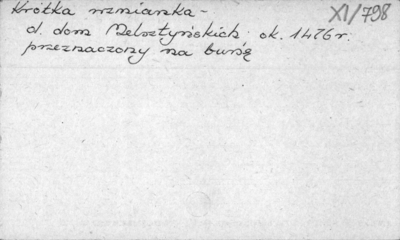 Krótka wzmianka -
XI/798
d. dom Melsztyńskich ok. 1476 r.
przeznaczony na bursę